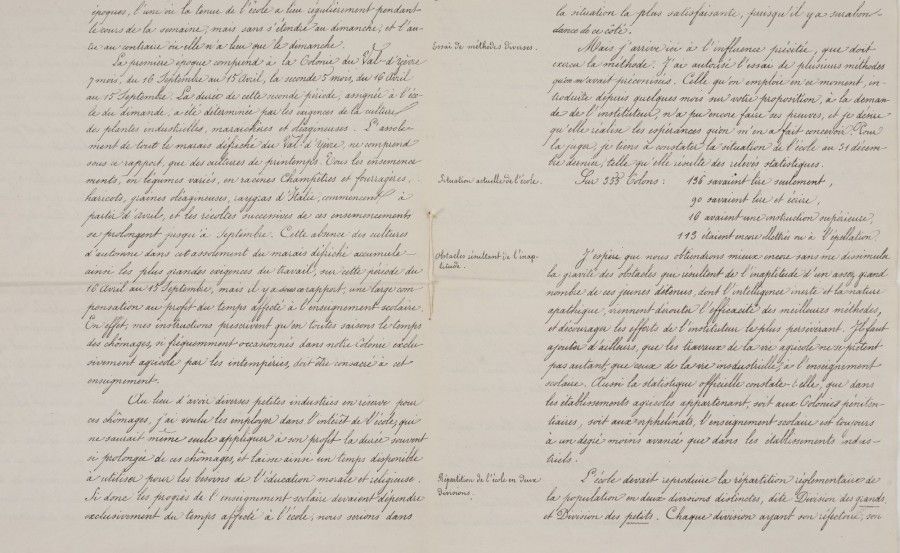 époques, l'une où la tenue de l'école a lieu régulièrement pendant
le cours de la semaine, mais sans s'étendre au dimanche, et l'au-
tre au contraire où elle n'a lieu que le dimanche.
La première époque comprend à la Colonie du Val-d'Yèvre
7 mois, du 16 Septembre au 15 Avril, la seconde 5 mois, du 16 Avril
au 15 Septembre. La durée de cette seconde période, assignée à l'éco-
le du dimanche, a été déterminée par les exigences de la culture
des plantes industrielles, maraîchères et oléagineuses. L'assole-
ment de tout le marais défriché du Val d'Yèvre, ne comprend
sous ce rapport, que des cultures de printemps. Tous les ensemence-
ments, en légumes variés, en racines Champêtres et fourragères,
haricots, graines oléagineuses, raygras d'Italie, commencent à
partir d'Avril, et les récoltes successives de ces ensemencements
se prolongent jusqu'à Septembre. Cette absence des cultures
d'automne dans cet assolement du marais défriché accumule
ainsi les plus grandes exigences du travail, sur cette période du
16 Avril au 15 Septembre, mais il y a sous ce rapport, une large com-
pensation au profit du temps affecté à l'enseignement scolaire.
En effet, mes instructions prescrivent qu'en toutes saisons le temps
des chômages, si fréquemment occasionnés dans notre Colonie exclu-
sivement agricole par les intempéries, doit être consacré à cet
enseignement.
Au lieu d'avoir diverses petites industries en réserve pour
ces chômages, j'ai voulu les employer dans l'intérêt de l'école, qui
ne saurait même seule appliquer à son profit la durée souvent
si prolongée de ces chômages, et laisse ainsi un temps disponible
à utiliser pour les besoins de l'éducation morale et religieuse.
Si donc les progrès de l'enseignement scolaire devaient dépendre
exclusivement du temps affecté à l'école, nous serions dans
la situation la plus satisfaisante, puisqu'il y a surabon-
dance de ce côté.
Essai de méthodes diverses.
Mais j'arrive ici à l'influence précitée, que doit
exercer la méthode. J'ai autorisé l'essai de plusieurs méthodes
qu'on m'avait préconisées. Celle qu'on emploie en ce moment, in-
troduite depuis quelques mois sur votre proposition, à la deman-
de de l'instituteur, n'a pu encore faire ses preuves, et je désire
qu'elle réalise les espérances qu'on m'en a fait concevoir. Pour
la juger, je tiens à constater la situation de l'école au 31 décem-
bre dernier, telle qu'elle résulte des relevés statistiques.
Situation actuelle de l'école.
Sur 355 Colons: 136 savaient lire seulement,
90 savaient lire et écrire,
16 avaient une instruction supérieure,
113 étaient encore illettrés ou à l'épellation.
Obstacles résultant de l'inap-
titude.
J'espère que nous obtiendrons mieux encore sans me dissimuler
la gravité des obstacles que résultent de l'inaptitude d'un assez grand
nombre de ces jeunes détenus, dont l'intelligence inerte et la nature
apathique, viennent dérouter l'efficacité des meilleures méthodes,
et décourager les efforts de l'instituteur le plus persévérant. Il faut
ajouter d'ailleurs, que les travaux de la vie agricole ne se prêtent
pas autant, que ceux de la vie industrielle, à l'enseignement
scolaire. Aussi la statistique officielle constate-t-elle, que dans
les établissements agricoles appartenant, soit aux Colonies péniten-
tiaires, soit aux orphelinats, l'enseignement scolaire est toujours
à un degré moins avancé que dans les établissements indus-
triels.
Répartition de l'école en deux
Divisions.
L'école devait reproduire la répartition réglementaire de
la population en deux divisions distinctes, dite Division des grands
et Division des petits. Chaque division ayant son réfectoire, son